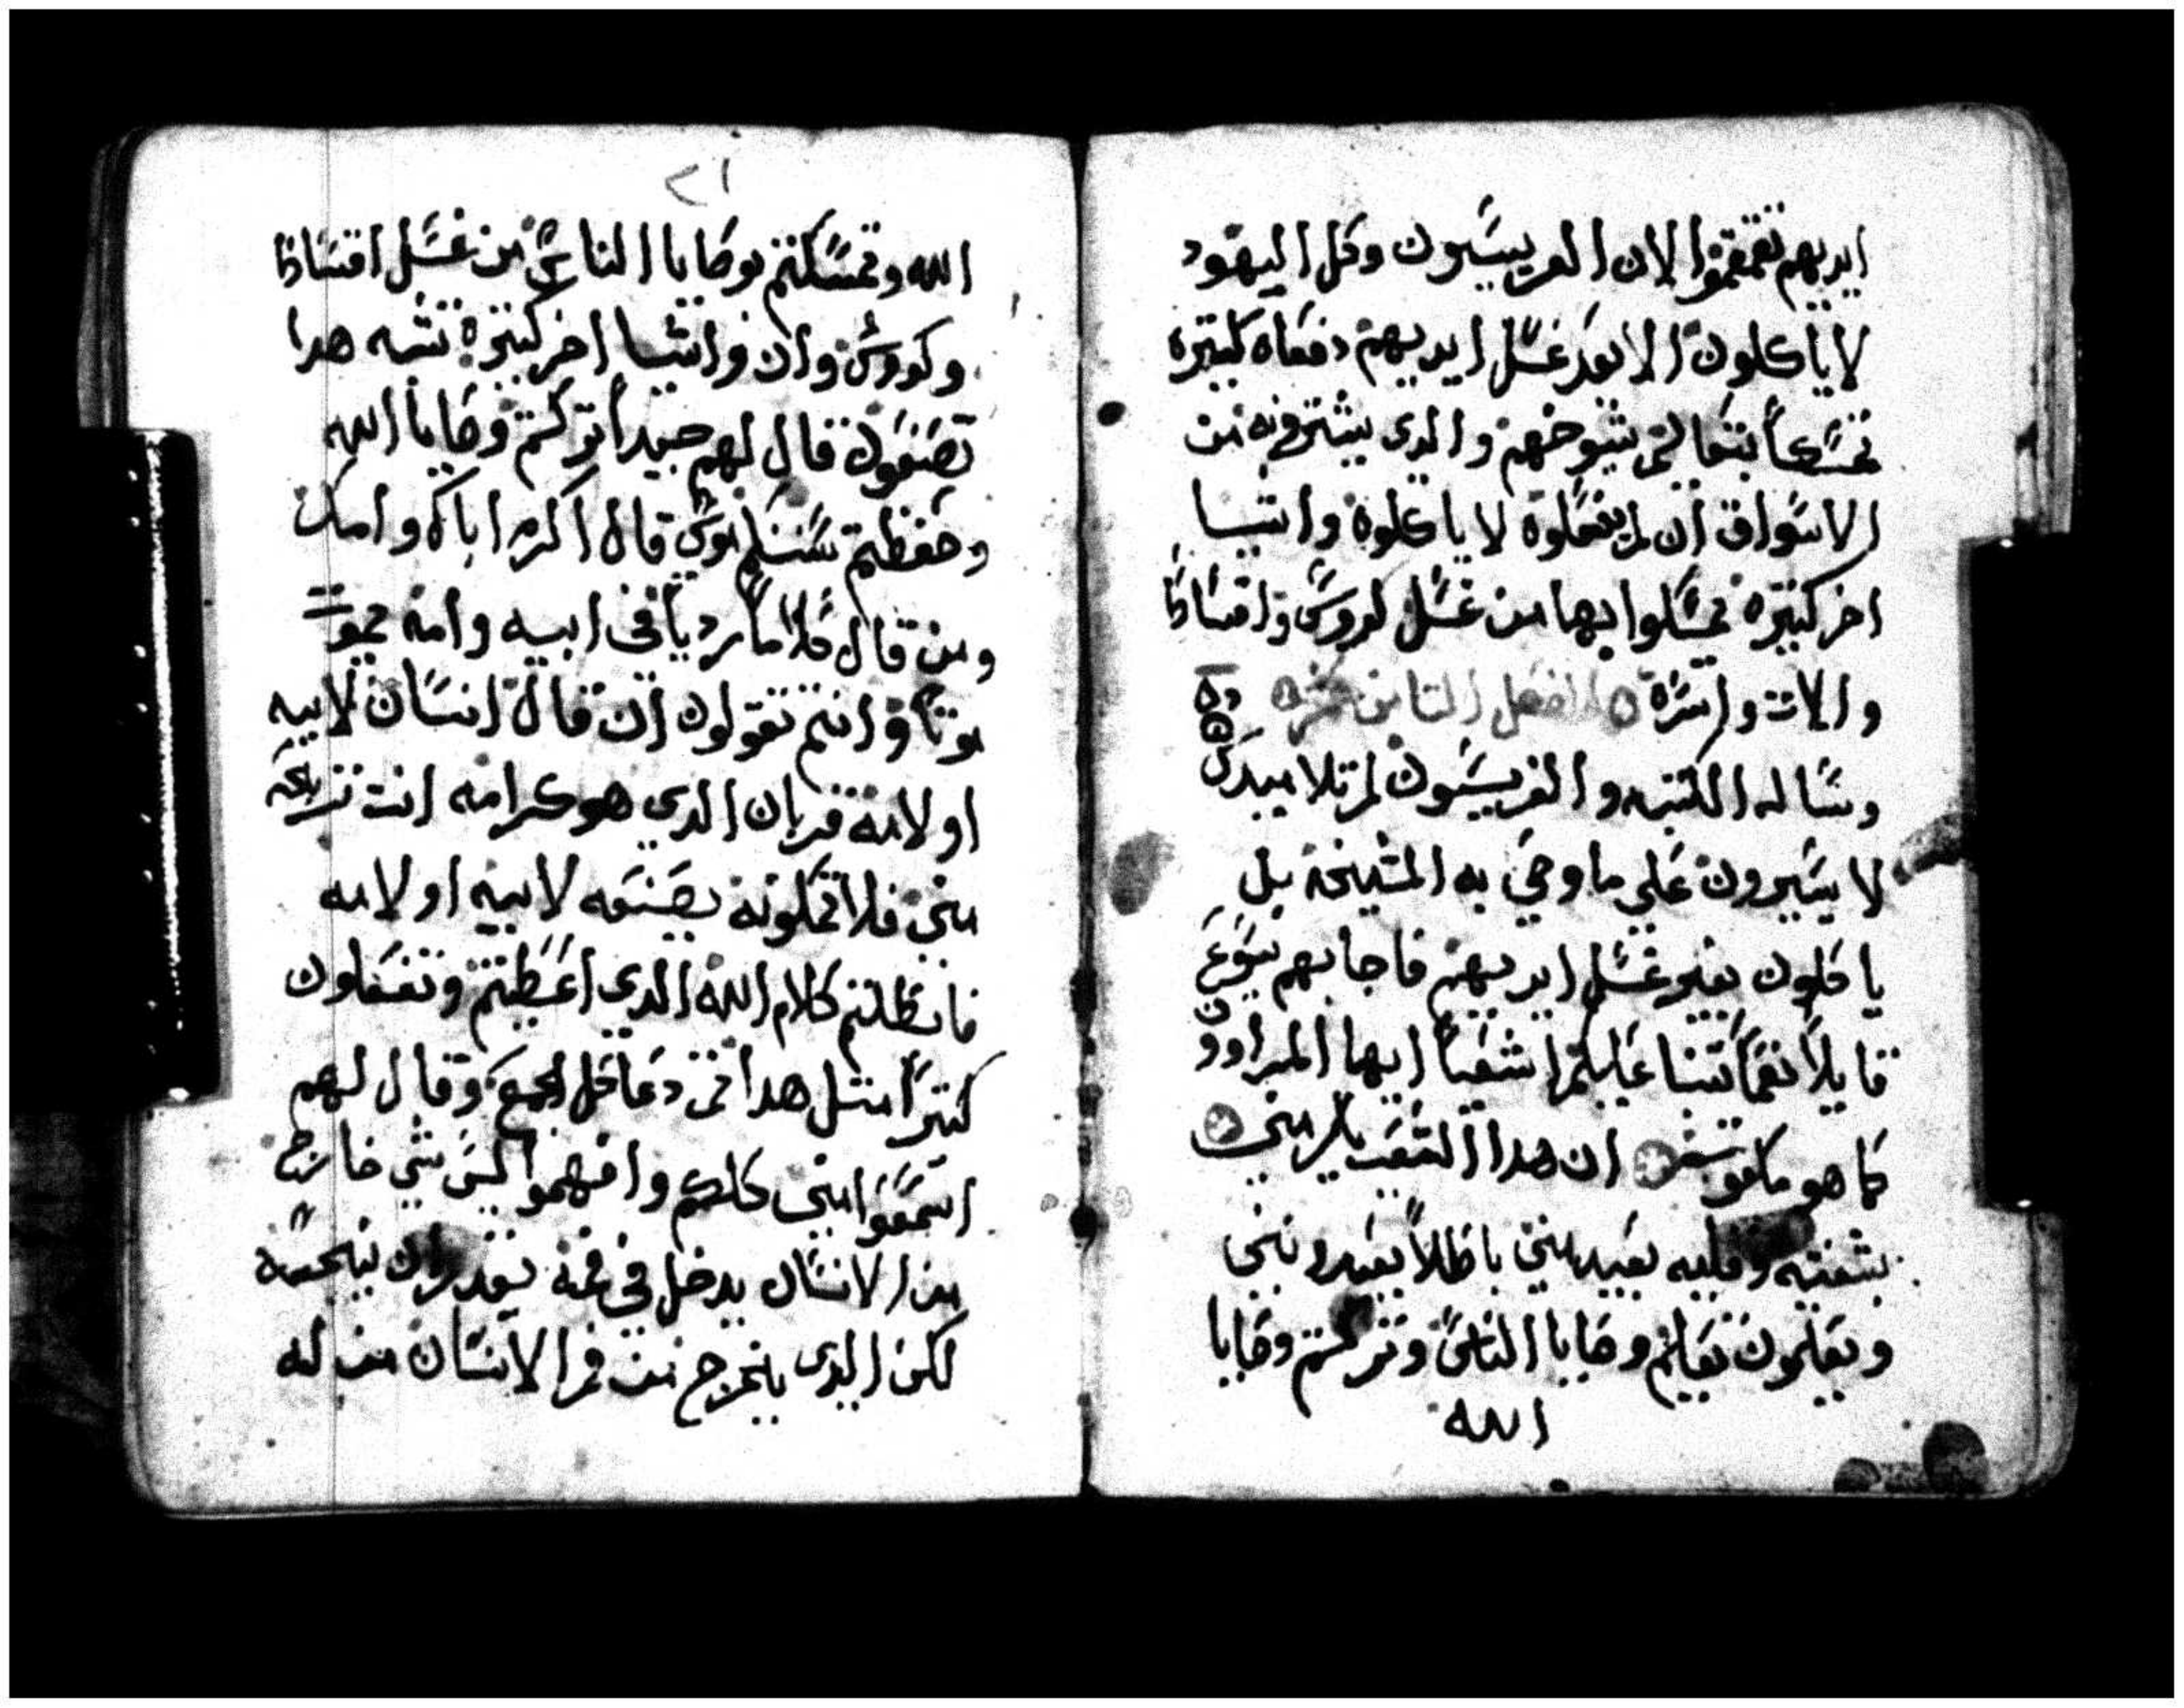 ايديهم تقمقموا لان الفريسيون وكل اليهود
لا ياكلون الا بعد غسل ايديهم دفعاه كتيره
تمسكاً بتعاليم شيوخهم والدى يشترونه من
الاسواق ان لم يغسلوه لا ياكلوه واشيا
اخر كتيره تمسكوا بها من غسل كووس واقساط
والات واسره الفصل التامن عشر
وساله الكتبه والفريسيون لم تلاميدك
لا يسيرون على ما وصي به المشيخه بل
ياكلون بغير غسل ايديهم فاجابهم يسوع
قايلاً نعماً تنبا عليكم اشعيا ايها المراوون
كما هو مكتوب ان هدا الشعب يكرمني
بشفتيه وقلبه بعيد مني باطلاً يعبدونني
ويعلمون تعاليم وصايا الناس وتركتم وصايا
الله
٢١
الله وتمسكتم بوصايا الناس من غسل اقساط
وكووس واوان واشيا اخر كتيره تشبه هدا
تصنعون قال لهم جيداً تركتم وصايا الله
وحفظتم سننكم موسى قال اكرم اباك وامك
ومن قال كلاماً ردياً في ابيه وامه يموت
موتاً وانتم تقولون ان قال انسان لابيه
او لامه قربان الدي هو كرامه انت تربحه
مني فلا تمكونه يصنعه لابيه او لامه
فابطلتم كلام الله الدي اعطيتم وتفعلون
كتيراً متل هدا تم دعا كل الجمع وقال لهم
اسمعوا مني كلكم وافهموا ليس شي خارج
من الانسان يدخل في فمه يقدر ان ينجسه
لكن الدى يخرج من فم الانسان من له